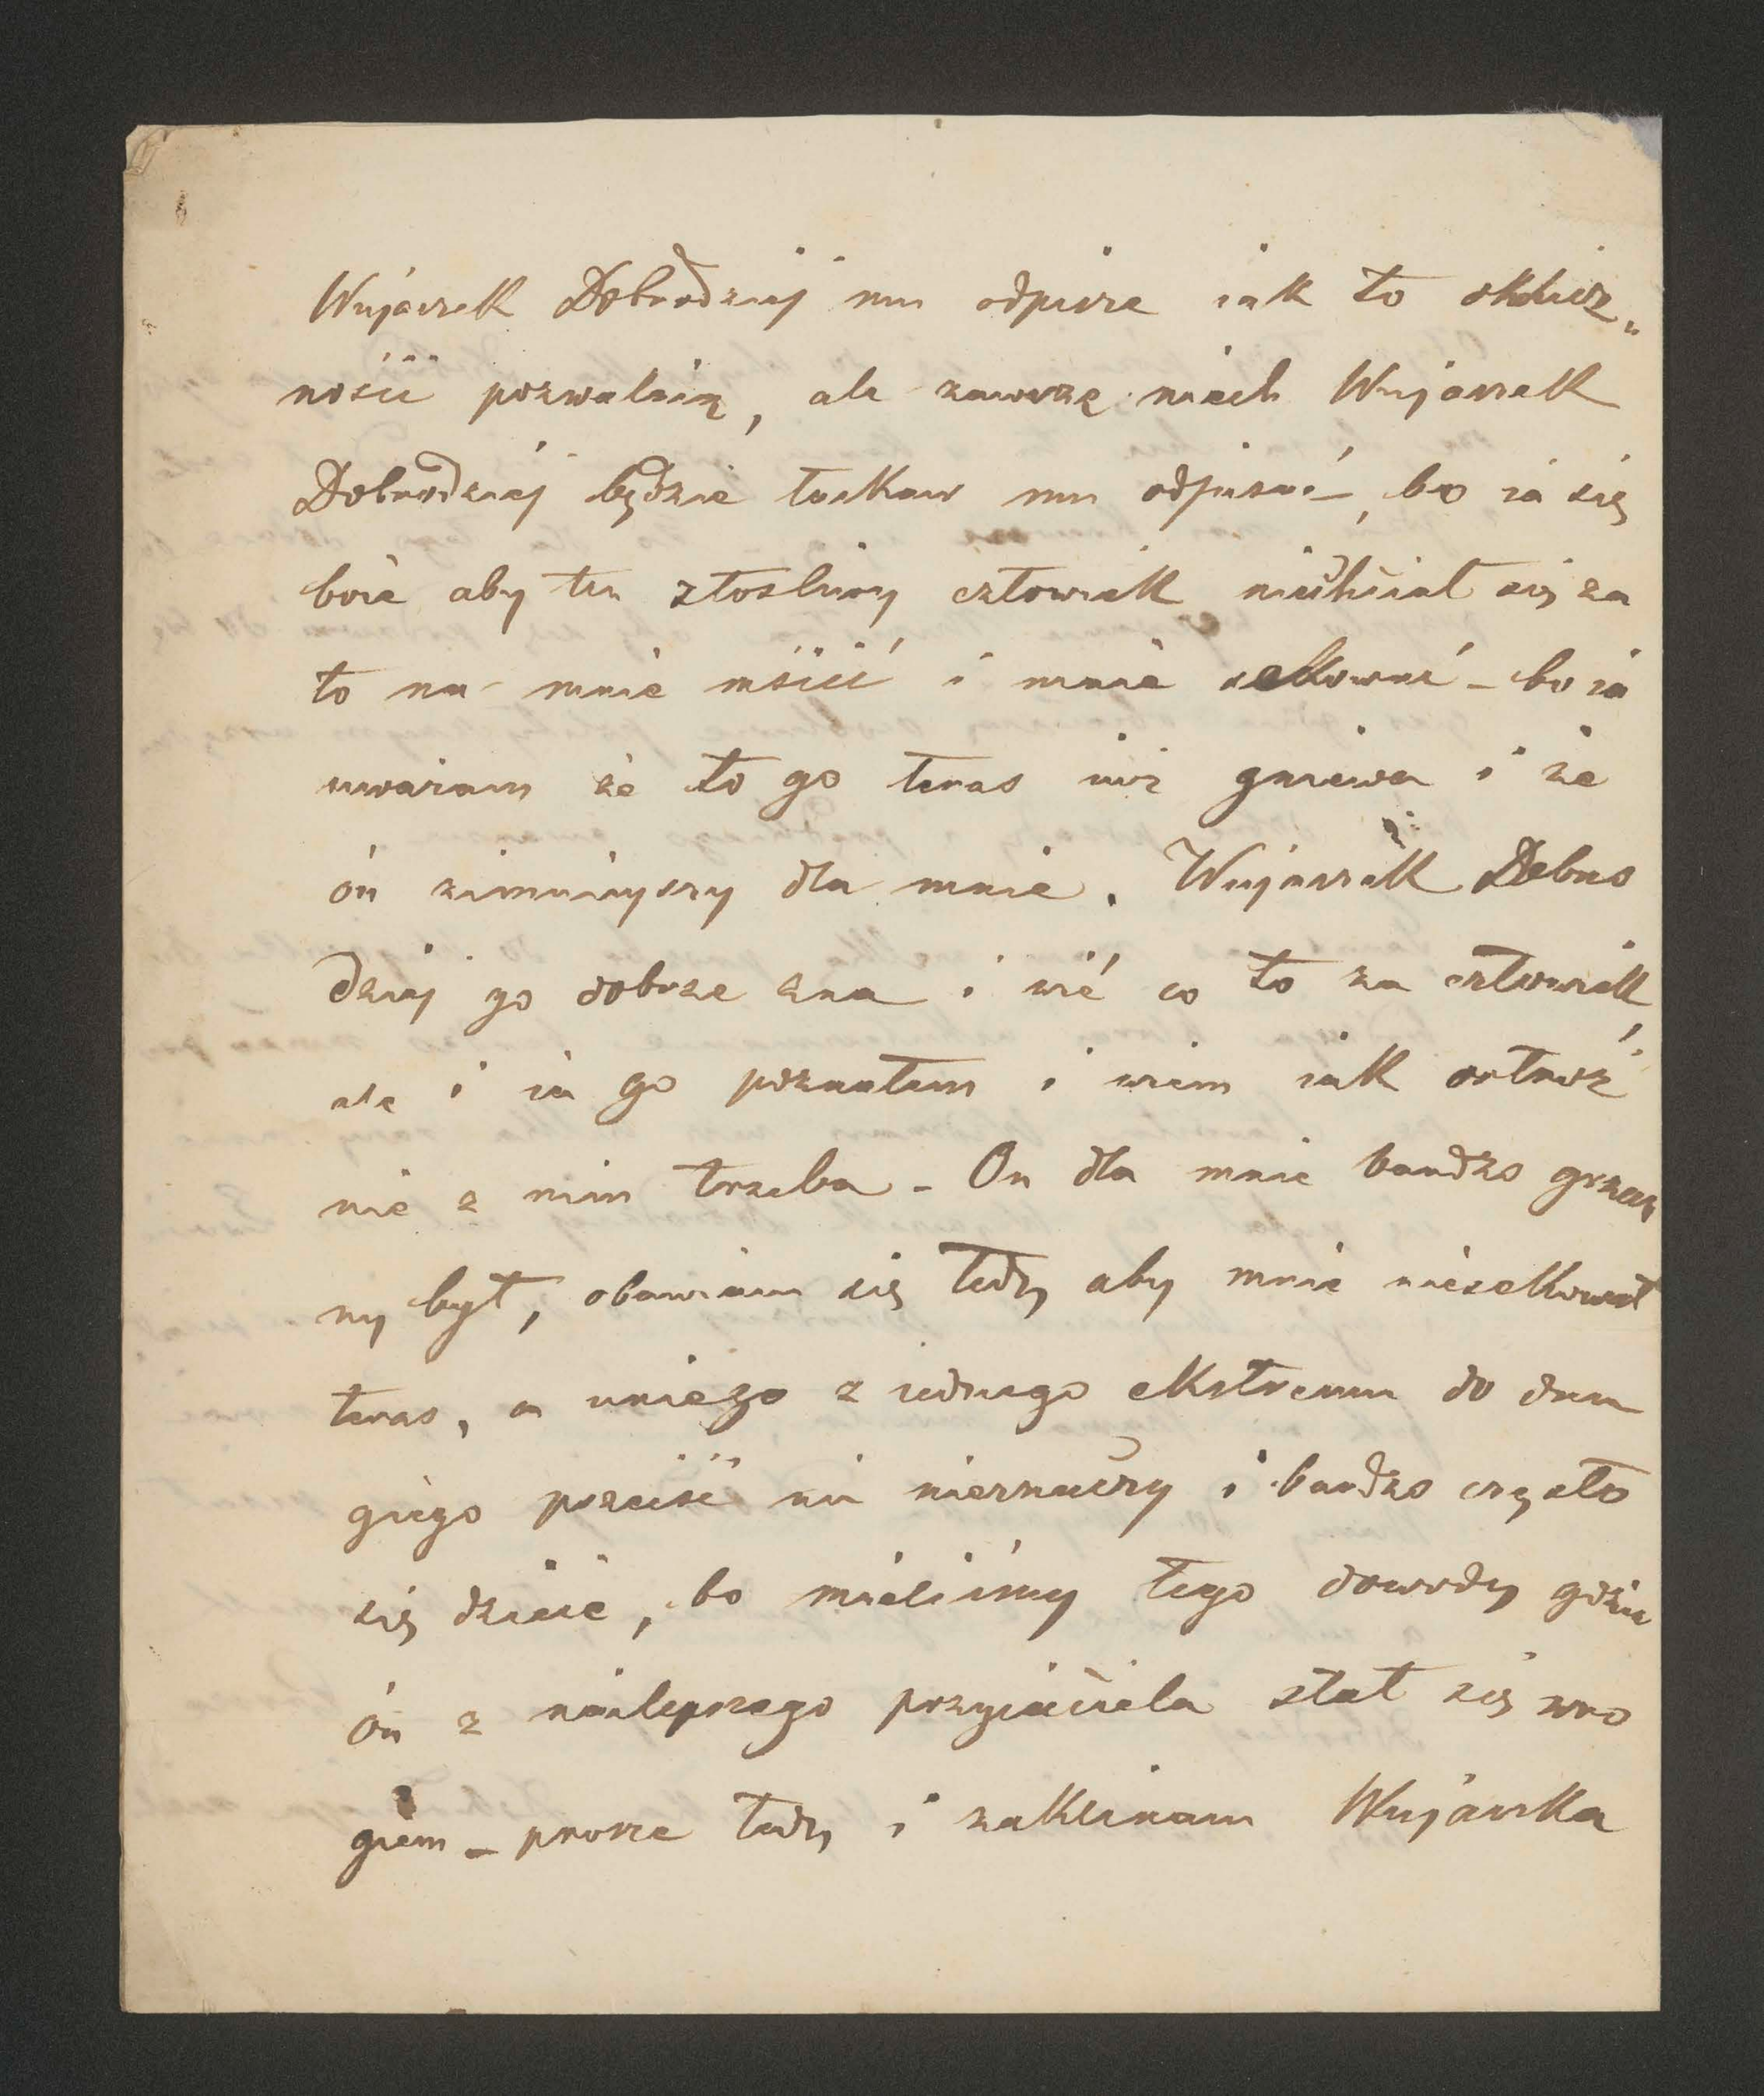 Wujaszek Dobrodziej mu odpisze iak to okolicz„
ności pozwalaią, ale zawsze niech Wujaszek
Dobrodziej będzie łaskaw mu odpisać, bo ia się
boie aby ten złosliwy człowiek niechciał się za
to na mnie mścić i mnie sekować – bo ia
uważam że to go teras iuż gniewa i że
ón zimnieyszy dla mnie. Wujaszek Dobro
dziej go dobrze zna i wié co to za człowiek,
ale i ia go poznałem i wiem iak ostroż
nie z nim trzeba – On dla mnie bardzo grzecz
ny był, obawiam się tedy aby mnie niesekował
teras, a uniego z iednego ekstremu do dru
giego przeiść nic nieznaczy i bardzo często
się dzieie, bo mieliśmy tego dowody gdzie
ón z nailepszego przyiaciela stał się wro
giem – prosze tedy i zaklinam Wujaszka